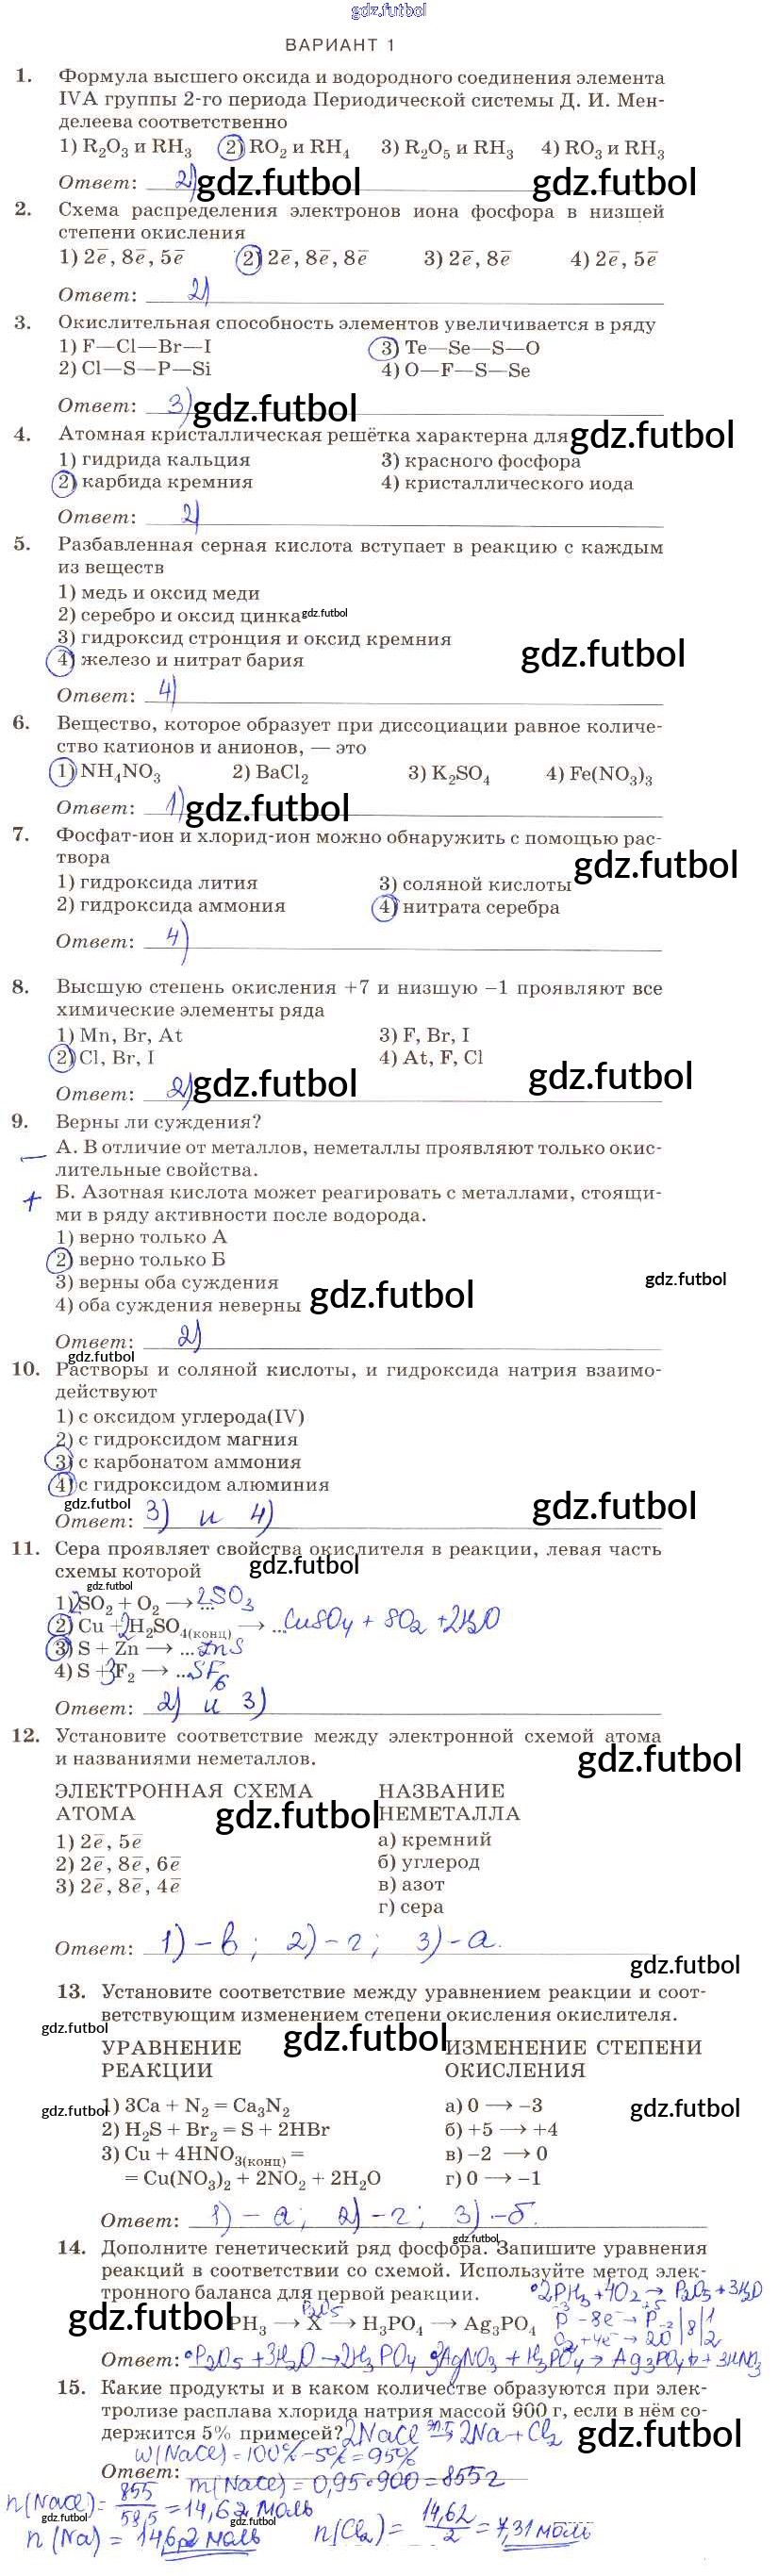 gdz.futbol
ВАРИАНТ 1
1. Формула высшего оксида и водородного соединения элемента
IVA группы 2-го периода Периодической системы Д. И. Мен-
делеева соответственно
1) R₂O₃ и RH₃ 2) RO₂ и RH₄ 3) R₂O₅ и RH₃ 4) RO₃ и RH₃
Ответ: 2) gdz.futbol gdz.futbol
2. Схема распределения электронов иона фосфора в низшей
степени окисления
1) 2e̅, 8e̅, 5e̅ 2) 2e̅, 8e̅, 8e̅ 3) 2e̅, 8e̅ 4) 2e̅, 5e̅
Ответ: 2)
3. Окислительная способность элементов увеличивается в ряду
1) F—Cl—Br—I 3) Te—Se—S—O
2) Cl—S—P—Si 4) O—F—S—Se
Ответ: 3) gdz.futbol
4. Атомная кристаллическая решётка характерна для gdz.futbol
1) гидрида кальция 3) красного фосфора
2) карбида кремния 4) кристаллического иода
Ответ: 2)
5. Разбавленная серная кислота вступает в реакцию с каждым
из веществ
1) медь и оксид меди
2) серебро и оксид цинка gdz.futbol
3) гидроксид стронция и оксид кремния
4) железо и нитрат бария gdz.futbol
Ответ: 4)
6. Вещество, которое образует при диссоциации равное количе-
ство катионов и анионов, — это
1) NH₄NO₃ 2) BaCl₂ 3) K₂SO₄ 4) Fe(NO₃)₃
Ответ: 1) gdz.futbol
7. Фосфат-ион и хлорид-ион можно обнаружить с помощью рас-
твора gdz.futbol
1) гидроксида лития 3) соляной кислоты
2) гидроксида аммония 4) нитрата серебра
Ответ: 4)
8. Высшую степень окисления +7 и низшую –1 проявляют все
химические элементы ряда
1) Mn, Br, At 3) F, Br, I
2) Cl, Br, I 4) At, F, Cl
Ответ: 2) gdz.futbol gdz.futbol
9. Верны ли суждения?
— А. В отличие от металлов, неметаллы проявляют только окис-
лительные свойства.
+ Б. Азотная кислота может реагировать с металлами, стоящи-
ми в ряду активности после водорода.
1) верно только А
2) верно только Б
3) верны оба суждения gdz.futbol
4) оба суждения неверны gdz.futbol
Ответ: 2)
gdz.futbol
10. Растворы и соляной кислоты, и гидроксида натрия взаимо-
действуют
1) с оксидом углерода(IV)
2) с гидроксидом магния
3) с карбонатом аммония
4) с гидроксидом алюминия
gdz.futbol gdz.futbol
Ответ: 3) и 4)
11. Сера проявляет свойства окислителя в реакции, левая часть
схемы которой gdz.futbol
gdz.futbol
1) 2SO₂ + O₂ → ... 2SO₃
2) Cu + 2H₂SO₄(конц) → ... CuSO₄ + SO₂ + 2H₂O
3) S + Zn → ... ZnS
4) S + 3F₂ → ... SF₆
Ответ: 2) и 3)
12. Установите соответствие между электронной схемой атома
и названиями неметаллов. gdz.futbol
ЭЛЕКТРОННАЯ СХЕМА НАЗВАНИЕ
АТОМА gdz.futbol НЕМЕТАЛЛА
1) 2e̅, 5e̅ а) кремний
2) 2e̅, 8e̅, 6e̅ б) углерод
3) 2e̅, 8e̅, 4e̅ в) азот
г) сера
Ответ: 1) – в; 2) – г; 3) – а.
gdz.futbol
13. Установите соответствие между уравнением реакции и соот-
ветствующим изменением степени окисления окислителя.
gdz.futbol gdz.futbol
УРАВНЕНИЕ ИЗМЕНЕНИЕ СТЕПЕНИ
РЕАКЦИИ ОКИСЛЕНИЯ
1) 3Ca + N₂ = Ca₃N₂ а) 0 → –3
gdz.futbol gdz.futbol
2) H₂S + Br₂ = S + 2HBr б) +5 → +4
3) Cu + 4HNO₃(конц) = в) –2 → 0
= Cu(NO₃)₂ + 2NO₂ + 2H₂O г) 0 → –1
Ответ: 1) – а; 2) – г; 3) – б.
gdz.futbol
14. Дополните генетический ряд фосфора. Запишите уравнения
реакций в соответствии со схемой. Используйте метод элек-
тронного баланса для первой реакции. •2PH₃ + 4O₂ → P₂O₅ + 3H₂O
gdz.futbol P₂O₅
PH₃ → X → H₃PO₄ → Ag₃PO₄ P⁻³ – 8e → P⁺⁵ |8|1
O₂ + 4e → 2O⁻² | |2
Ответ: •P₂O₅ + 3H₂O → 2H₃PO₄ 3AgNO₃ + H₃PO₄ → Ag₃PO₄↓ + 3HNO₃
15. Какие продукты и в каком количестве образуются при элек-
тролизе расплава хлорида натрия массой 900 г, если в нём со-
держится 5% примесей? 2NaCl → 2Na + Cl₂ gdz.futbol
w(NaCl) = 100% – 5% = 95%
Ответ: m(NaCl) = 0,95 • 900 = 855 г
n(NaCl) = 855/58,5 = 14,62 моль
gdz.futbol gdz.futbol
n(Na) = 14,62 моль n(Cl₂) = 14,62/2 = 7,31 моль